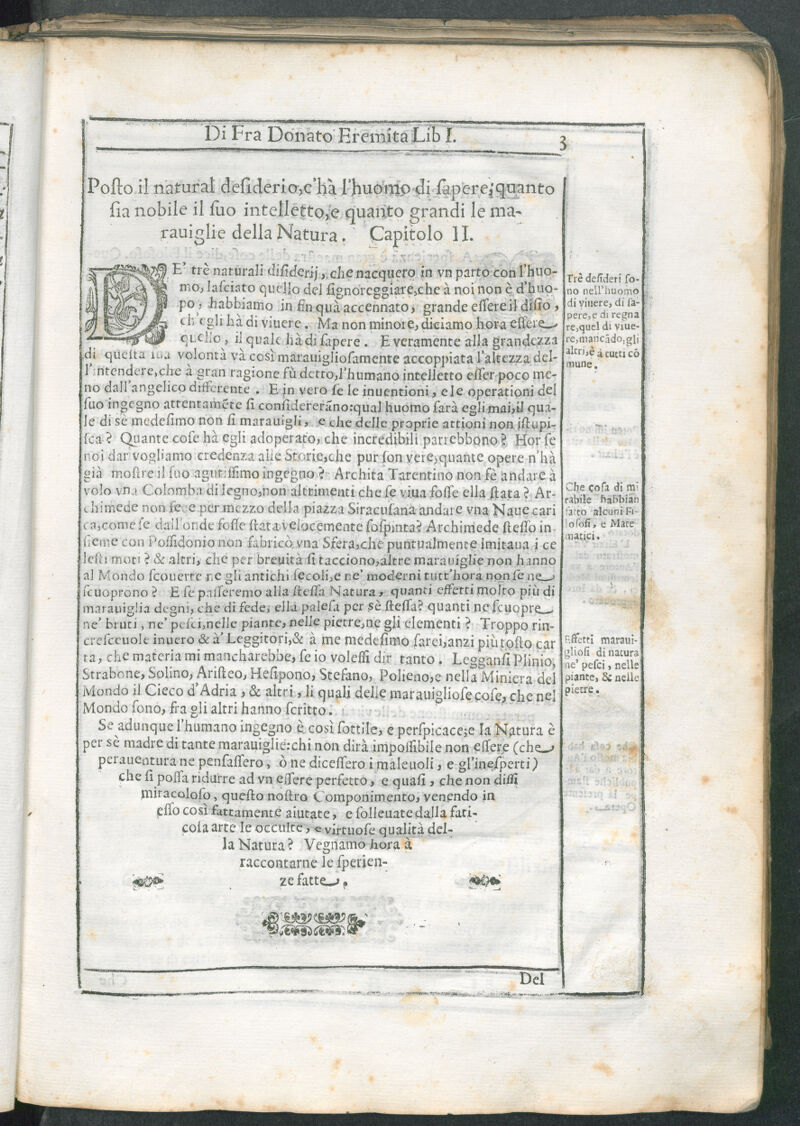 Di Fra Donato Eremita Lib I.
3
Posto il natural desiderio, c'hà l'huomo di sapere; quanto
sia nobile il suo intelletto, e quanto grandi le ma-
rauiglie della Natura. Capitolo II.
DE' trè naturali disiderij, che nacquero in vn parto con l'huo-
mo, lasciato quello del signoreggiare, che à noi non è d'huo-
po, habbiamo in fin quà accennato, grande essere il disio,
ch'egli hà di viuere. Ma non minore, diciamo hora essere
quello, il quale hà di sapere. E veramente alla grandezza
di questa sua volontà và così marauigliosamente accoppiata l'altezza del-
l'intendere, che à gran ragione fù detto, l'humano intelletto esser poco me-
no dall'angelico differente. E in vero se le inuentioni, e le operationi del
suo ingegno attentamẽte si considererãno: qual huomo sarà egli mai, il qua-
le di sè medesimo non si marauigli, e che delle proprie attioni non istupi-
sca? Quante cose hà egli adoperato, che incredibili parrebbono? Hor se
noi dar vogliamo credenza alle Storie, che pur son vere, quante opere n'hà
già mostre il suo agutissimo ingegno? Archita Tarentino non fè andare à
volo vna Colomba di legno, non altrimenti che se viua fosse ella stata? Ar-
chimede non fece per mezzo della piazza Siracusana andare vna Naue cari
ca, come se dall'onde fosse stata velocemente sospinta? Archimede stesso in
sieme con Possidonio non fabricò vna Sfera, che puntualmente imitaua i ce
lesti moti? & altri, che per breuità si tacciono, altre marauiglie non hanno
al Mondo scouerte ne gli antichi secoli, e ne' moderni tutt'hora non se ne
scuoprono? E se passeremo alla stessa Natura, quanti effetti molto più di
marauiglia degni, che di fede, ella palesa per sè stessa? quanti ne scuopre
ne' bruti, ne' pesci, nelle piante, nelle pietre, ne gli elementi? Troppo rin-
cresceuole inuero & à' Leggitori, & à me medesimo sarei, anzi più tosto car
ta, che materia mi mancharebbe, se io volessi dir tanto. Leggansi Plinio,
Strabone, Solino, Aristeo, Hesipono, Stefano, Polieno, e nella Miniera del
Mondo il Cieco d'Adria, & altri, li quali delle marauigliose cose, che nel
Mondo sono, fra gli altri hanno scritto.
Se adunque l'humano ingegno è così sottile, e perspicace; e la Natura è
per sè madre di tante marauiglie: chi non dirà impossibile non essere (che
perauentura ne pensassero, ò ne dicessero i maleuoli, e gl'inesperti)
che si possa ridurre ad vn essere perfetto, e quasi, che non dissi
miracoloso, questo nostro Componimento, venendo in
esso così fattamente aiutate, e solleuate dalla fati-
cosa arte le occulte, e virtuose qualità del-
la Natura? Vegnamo hora à
raccontarne le sperien-
ze fatte.
Trè desideri so-
no nell'huomo
di viuere, di sa-
pere, e di regna
re, quel di viue-
re, mancãdo, gli
altri, è à tutti cõ
mune.
Che cosa di mi
rabile habbian
fatto alcuni Fi-
losofi, e Mate
matici.
Effetti maraui-
gliosi di natura
ne' pesci, nelle
piante, & nelle
pietre.
Del